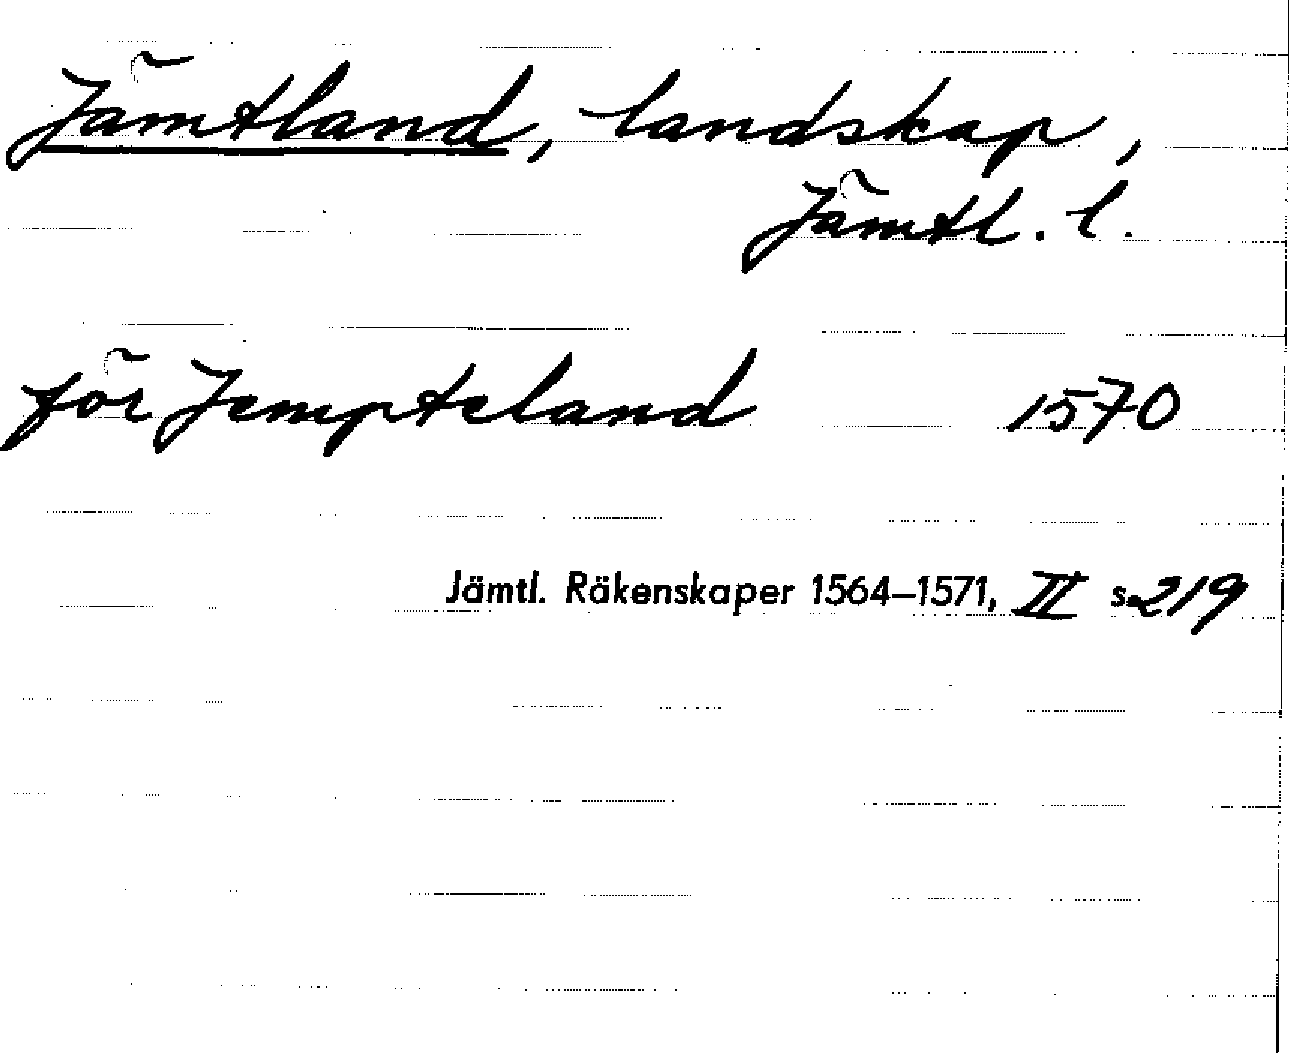 Jämtland, landskap,
Jämtl. l.
för Jempteland 1570
Jämtl. Räkenskaper 1564–1571, II s. 219